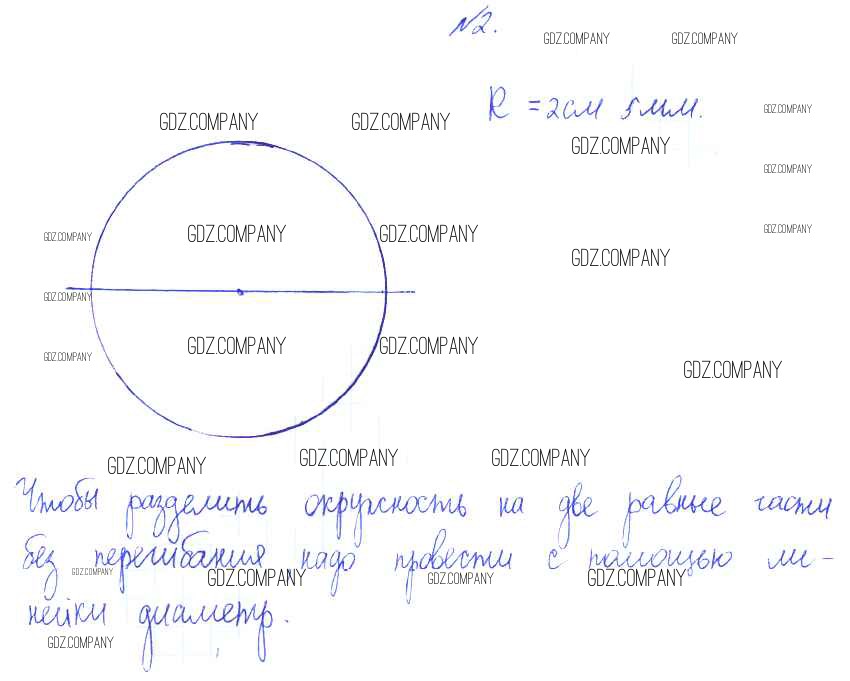 №2.
GDZ.COMPANY GDZ.COMPANY
R = 2см 5мм.
GDZ.COMPANY
GDZ.COMPANY GDZ.COMPANY
GDZ.COMPANY
GDZ.COMPANY
GDZ.COMPANY
GDZ.COMPANY GDZ.COMPANY GDZ.COMPANY
GDZ.COMPANY
GDZ.COMPANY
GDZ.COMPANY
GDZ.COMPANY GDZ.COMPANY GDZ.COMPANY
GDZ.COMPANY
GDZ.COMPANY GDZ.COMPANY GDZ.COMPANY
Чтобы разделить окружность на две равные части
без перегибания надо провести с помощью ли-
GDZ.COMPANY GDZ.COMPANY GDZ.COMPANY GDZ.COMPANY
нейки диаметр.
GDZ.COMPANY